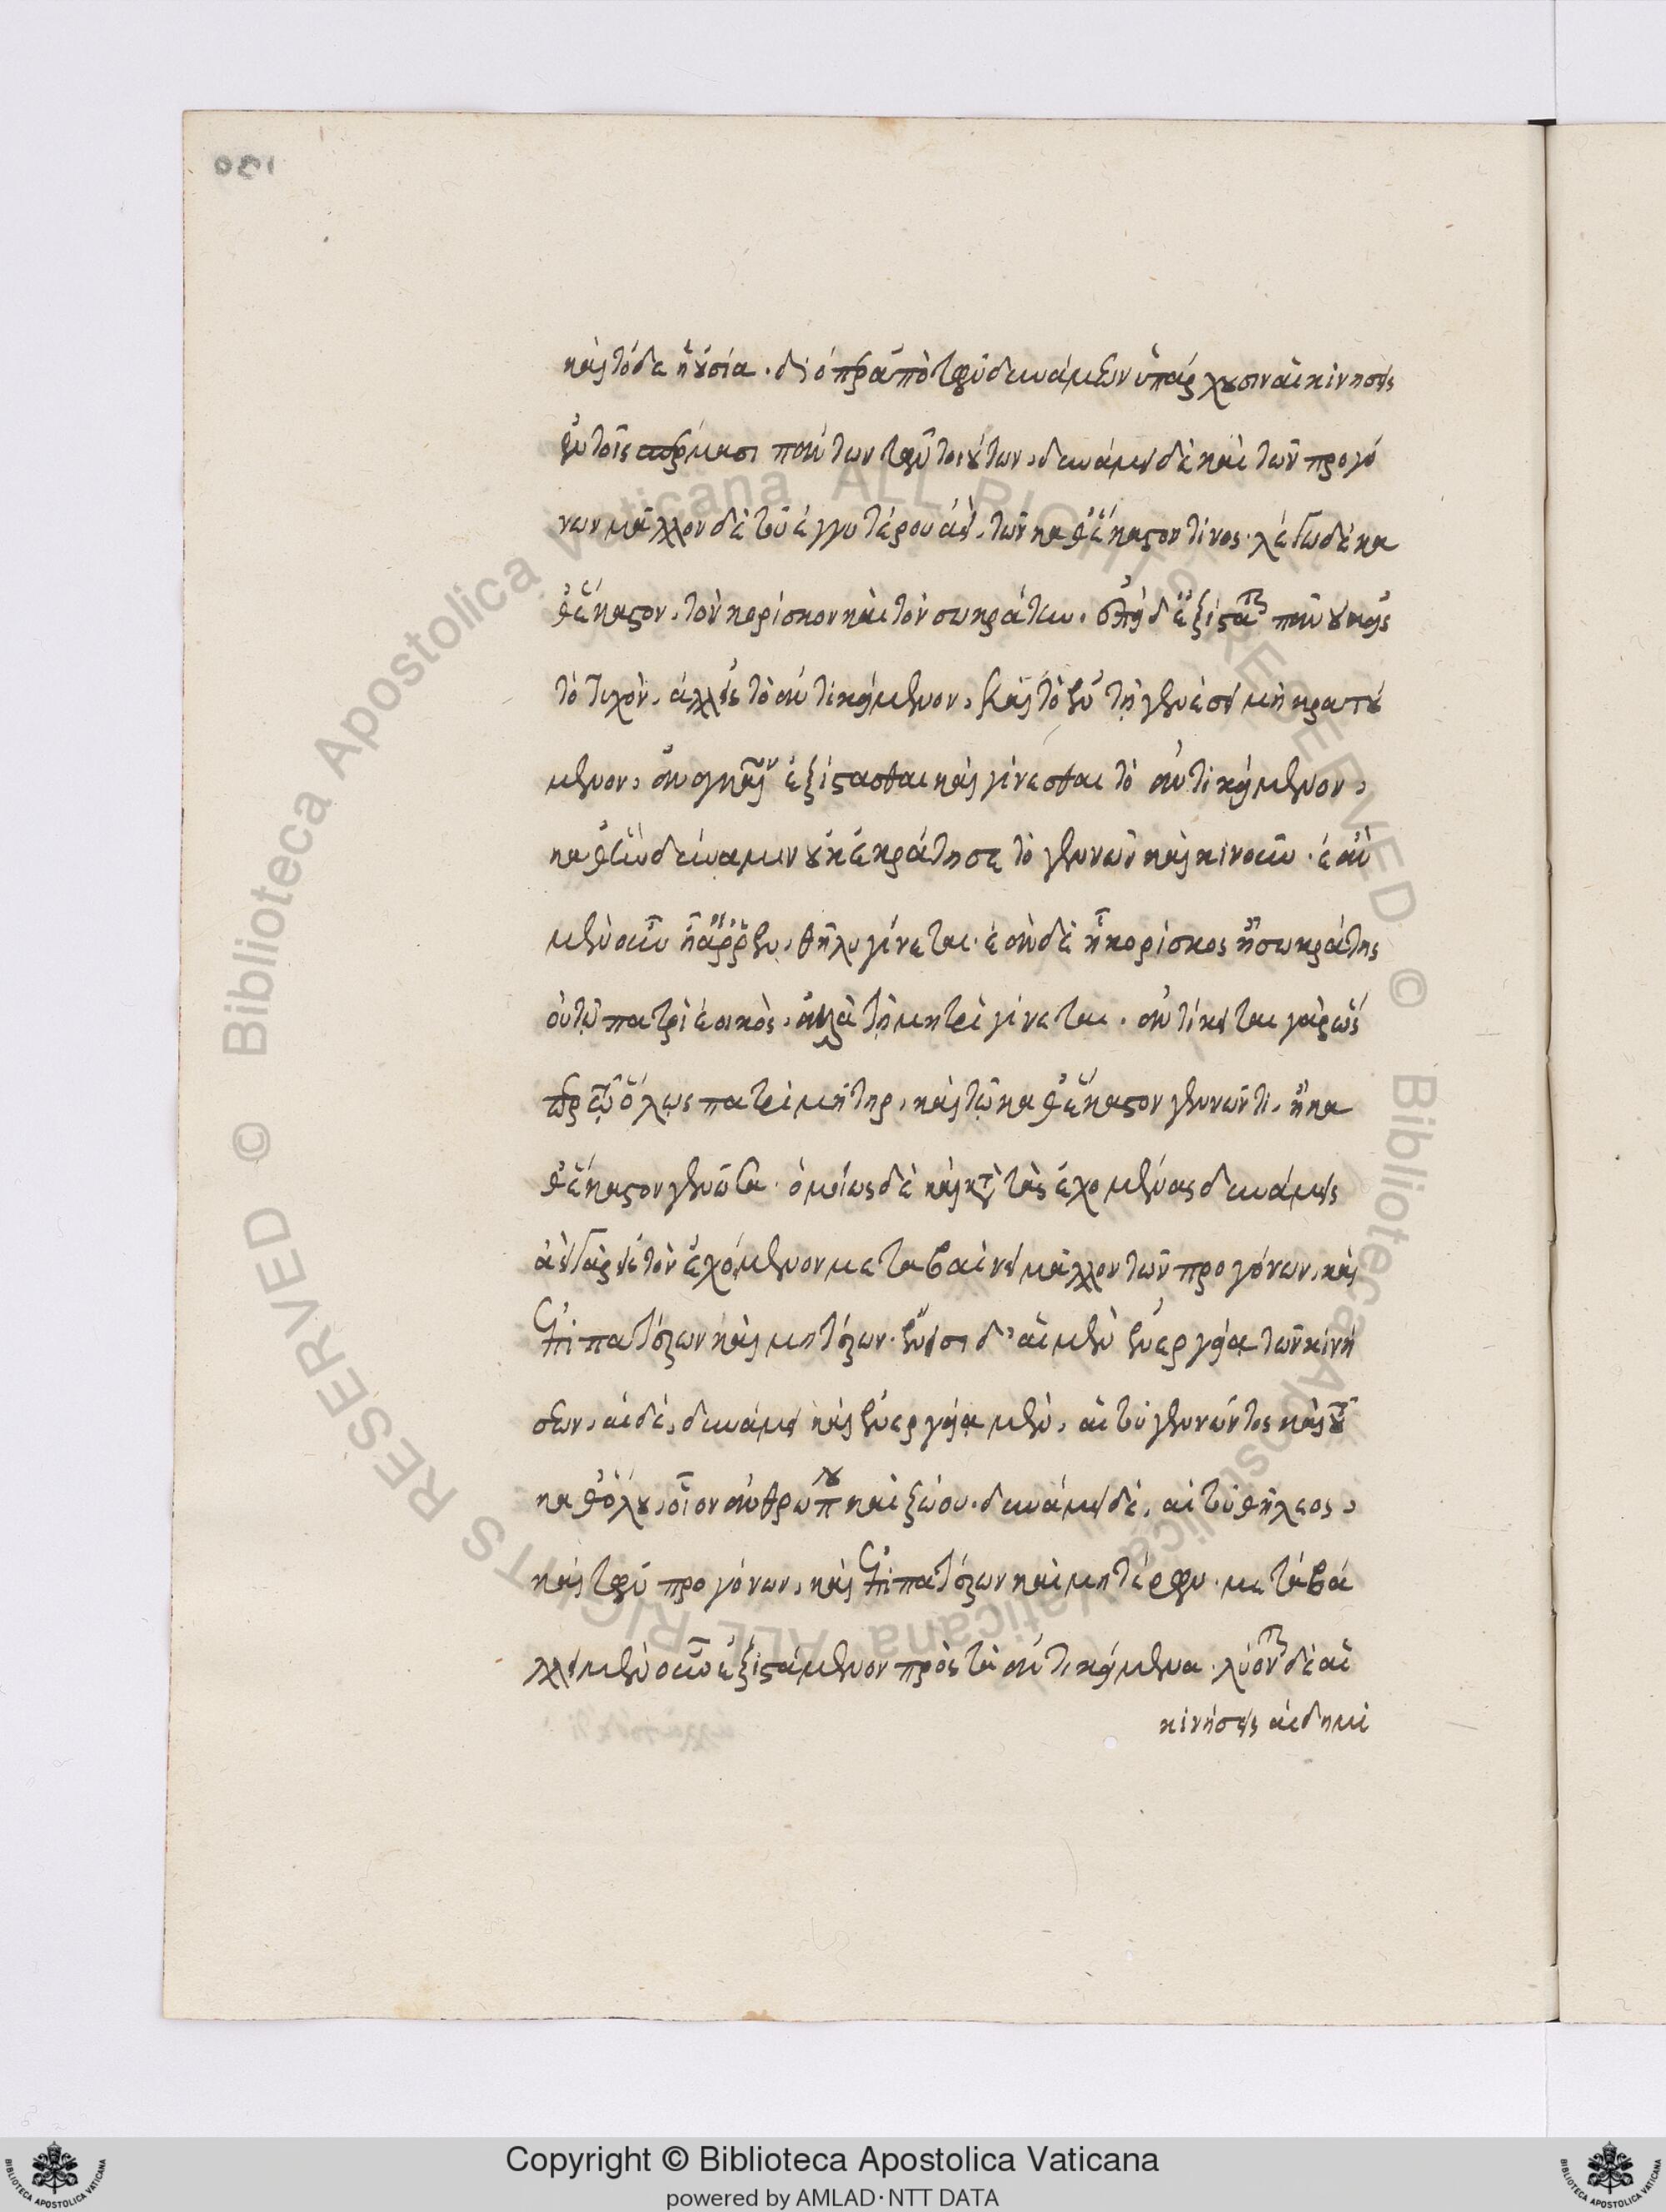 καὶ τόδε ἡ οὐσία. διόπερ ἀπὸ τῶν δυνάμεων ὑπάρχουσιν αἱ κινήσεις
ἐν τοῖς σπέρμασι πάντων τῶν τοιούτων, δυνάμει δὲ καὶ τῶν προγό
νων μᾶλλον δὲ τοῦ ἐγγυτέρου ἀεὶ, τῶν καθ' ἕκαστον τινος. λέγω δὲ κα
θ' ἕκαστον, τὸν κορίσκον καὶ τὸν σωκράτην. ἐπεὶ δ' ἐξίσταται πᾶν οὐκ εἰς
τὸ τυχὸν, ἀλλ' εἰς τὸ ἀντικείμενον, καὶ τὸ ἐν τῇ γενέσει μὴ κρατού
μενον, ἀναγκαῖον ἐξίστασθαι καὶ γίνεσθαι τὸ ἀντικείμενον,
καθ' ἣν δύναμιν οὐκ ἐκράτησε τὸ γεννῶν καὶ κινοῦν. ἐὰν
μὲν οὖν ᾗ ἄρρεν, θῆλυ γίνεται. ἐὰν δὲ ᾗ κορίσκος ἢ σωκράτης
οὐ τῷ πατρὶ ἐοικὸς, ἀλλὰ τῇ μητρὶ γίνεται. ἀντίκειται γὰρ ὥσ
περ τῷ ὅλως πατρὶ μήτηρ, καὶ τῷ καθ' ἕκαστον γεννῶντι, ἡ κα
θ' ἕκαστον γεννῶσα. ὁμοίως δὲ καὶ κατὰ τὰς ἐχομένας δυνάμεις
ἀεὶ γὰρ εἰς τὸν ἐχόμενον μεταβαίνει μᾶλλον τῶν προγόνων, καὶ
ἐπὶ πατέρων καὶ μητέρων. ἔνεισι δ' αἱ μὲν ἐνεργείᾳ τῶν κινή
σεων, αἱ δὲ, δυνάμει καὶ ἐνεργείᾳ μὲν, αἱ τοῦ γεννῶντος καὶ τοῦ
καθόλου, οἷον ἀνθρώπου καὶ ζώου. δυνάμει δὲ, αἱ τοῦ θήλεος,
καὶ τῶν προγόνων, καὶ ἐπὶ πατέρων καὶ μητέρων. μεταβά
λλει μὲν οὖν ἐξιστάμενον πρὸς τὰ ἀντικείμενα. λύονται δὲ αἱ
κινήσεις αἱ δημι